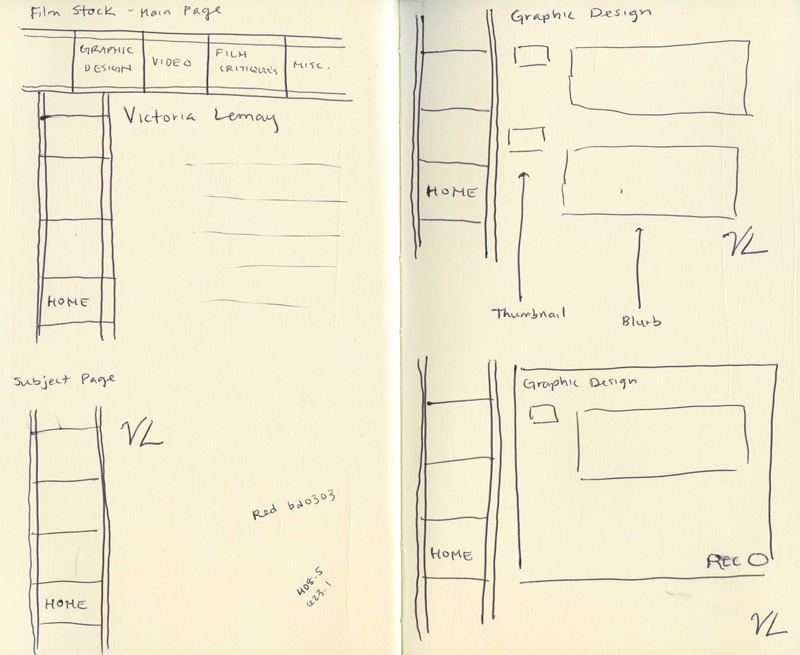 Film Stock - Main Page
GRAPHIC
DESIGN
VIDEO
FILM
CRITIQUES
MISC.
Victoria Lemay
HOME
Subject Page
VL
Red bd0303
408.5
623.1
HOME
Graphic Design
HOME
VL
Thumbnail
Blurb
Graphic Design
HOME
REC
VL